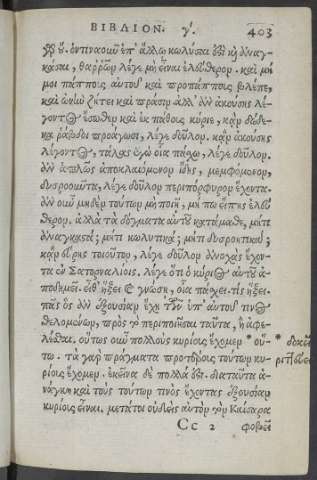 ΒΙΒΛΙΟΝ. γ'. 403
οὗ. ὁντιναοιῶ ἐπ' ἄλλῳ κωλῦσαι ὅδι κὴ ἀναγ-
κάσαι, θαῤῥῶν λέγε μὴ εἶναι ἐλεύθερον. καὶ μή
μοι πάππους αὐτοῦ καὶ προπάππους βλέπε,
καὶ ὠνὴν ζήτει καὶ πρᾶσιν ἀλλ' ἂν ἀκούσῃς λέ-
γοντος ἔσωθεν καὶ ἐκ πάθους κύριε, κἂν δώδε-
κα ῥάβδοι προάγωσι, λέγε δοῦλον. κἂν ἀκούσῃς
λέγοντος, τάλας ἐγὼ οἷα πάσχω, λέγε δοῦλον.
ἂν ἁπλῶς ἀποκλαιόμενον ἴδῃς, μεμφόμενον,
δυσροοῦντα, λέγε δοῦλον περιπόρφυρον ἔχοντα.
ἂν οὖν μηδὲν τούτων μὴ ποιῇ, μή πω εἴπῃς ἐλεύ
θερον. ἀλλὰ τὰ δόγματα αὐτοῦ κατάμαθε, μή τι
ἀναγκαστά; μή τι κωλυτικά; μή τι δυσροητικά;
κἂν εὕρῃς τοιοῦτον, λέγε δοῦλον ἀνοχὰς ἔχον-
τα ἐν Σατορναλίοις. λέγε ὅτι ὁ κύριος αὐτοῦ ἀ-
ποδημεῖ. εἶθ' ἥξει καὶ γνώσῃ, οἷα πάσχει. τίς ἥξει.
πᾶς ὃς ἂν ἐξουσίαν ἔχῃ τῶν ὑπ' αὐτοῦ τινος
θελομένων, πρὸς τὸ περιποιῆσαι ταῦτα, ἢ ἀφε-
λέσθαι. οὕτως οὖν πολλοὺς κυρίους ἔχομεν * οὕ-
τω. τὰ γὰρ πράγματα προτέρους τούτων κυ-
ρίους ἔχομεν. ἐκεῖνα δὲ πολλά ἐστι. διὰ ταῦτα ἀ-
νάγκη καὶ τοὺς τούτων τινὸς ἔχοντας ἐξουσίαν
κυρίους εἶναι. μετά τοι οὐδεὶς αὐτὸν τὸν Καίσαρα
Cc 2 φοβεῖ